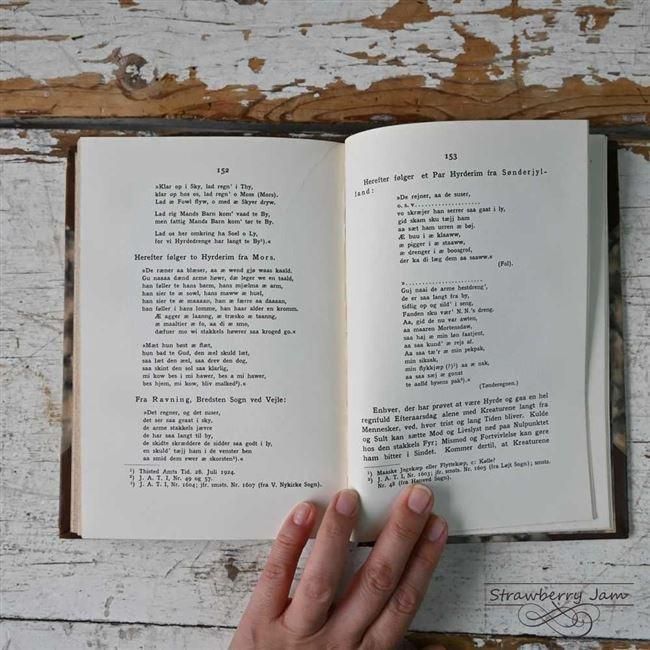 152
»Klar op i Sky, lad regn' i Thy,
klar op hos os, lad regn' o Moss (Mors).
Lad æ Fowl flyw, o mød æ Skyer dryw.
Lad rig Mands Barn kom' vaad te By,
men fattig Mands Barn kom' tør te By.
Lad os her omkring ha Soel o Ly,
for vi Hyrdedrenge har langt te By¹).«
Herefter følger to Hyrderim fra Mors.
»De ræner aa blæser, aa æ wend gjø waas kaald.
Gu naaaa dænd arme høwr, dæ leger we en taald,
han føller te hans bæm, hans mjælma æ arm,
han sier te æ sowl, hans maww æ huel,
han sier te æ maaaan, han æ færre aa daaaan,
han føller i hans lomme, han haar alder en kromm.
Æ agger æ laangg, æ træsko æ taanng,
æ maaltier æ fo, aa di æ smo,
dæfuer mo wi stakkels høwrer saa kroged go.«
»Mæt hun best æ flæt,
hun bad te Gud, den æel skuld læt,
saa læt den æel, saa drev den dog,
saa skint den sol saa klarlig,
mi kow bes i mi hawer, bes a mi hawer,
bes hjem, mi kow, bliv malked²).«
Fra Ravning, Bredsten Sogn ved Vejle:
»Det regner, og det suser,
det ser saa graat i sky,
de arme stakkels jævre
de har saa langt til by,
de skidte skrædderε de sidder saa godt i ly,
en skuld' tæjj ham i den venste haen
aa smid dem ewer æ skorsten³).«
¹) Thisted Amts Tid. 28. Juli 1924.
²) J. A. T. I, Nr. 49 og 57.
³) J. A. T. I, Nr. 1604; jfr. smsts. Nr. 1607 (fra V. Nykirke Sogn).
153
Herefter følger et Par Hyrderim fra Sønderjyl-
land:
»De rejner, aa de suser,
o. s. v.
vo skræjer han serrer saa gast i ly,
gid skam sku tæjj ham
aa sæt ham urren æ bøj.
Æ buu i æ klaaww,
æ pigger i æ staaww,
æ drenger i æ boosgrof,
der ka di læg dem aa saaww.«
(Fol).
»
Guj naai de arme hestdreng',
de er saa langt fra by,
tidlig op og sild' i seng,
Fanden sku vær' N. N.'s dreng.
Aa, gid de nu var awten,
aa maaren Mortensdaw,
saa haj æ min løn faatjent,
aa saa kund' æ rejs af.
Aa saa tæ'r æ min pekpak,
min siksak,
min flykkjæp (?)¹) aa æ nak,
aa saa sæj æ gonat
te aalld bysens pak²).«
(Tønderegnen.)
Enhver, der har prøvet at være Hyrde og gaa en hel
regnfuld Efteraarsdag alene med Kreaturene langt fra
Mennesker, ved, hvor trist og lang Tiden bliver. Kulde
og Sult kan sætte Mod og Livslyst ned paa Nulpunktet
hos den stakkels Fyr; Mismod og Fortvivlelse kan gøre
ham bitter i Sindet. Kommer dertil, at Kreaturene
¹) Maaske Jngskæp eller Flyttekæp, ɔ: Kølle?
²) J. A. T. I, Nr. 1603, jfr. smsts. Nr. 1605 (fra Løjt Sogn); smsts.
Nr. 48 (fra Hønved Sogn).
Strawberry Jam